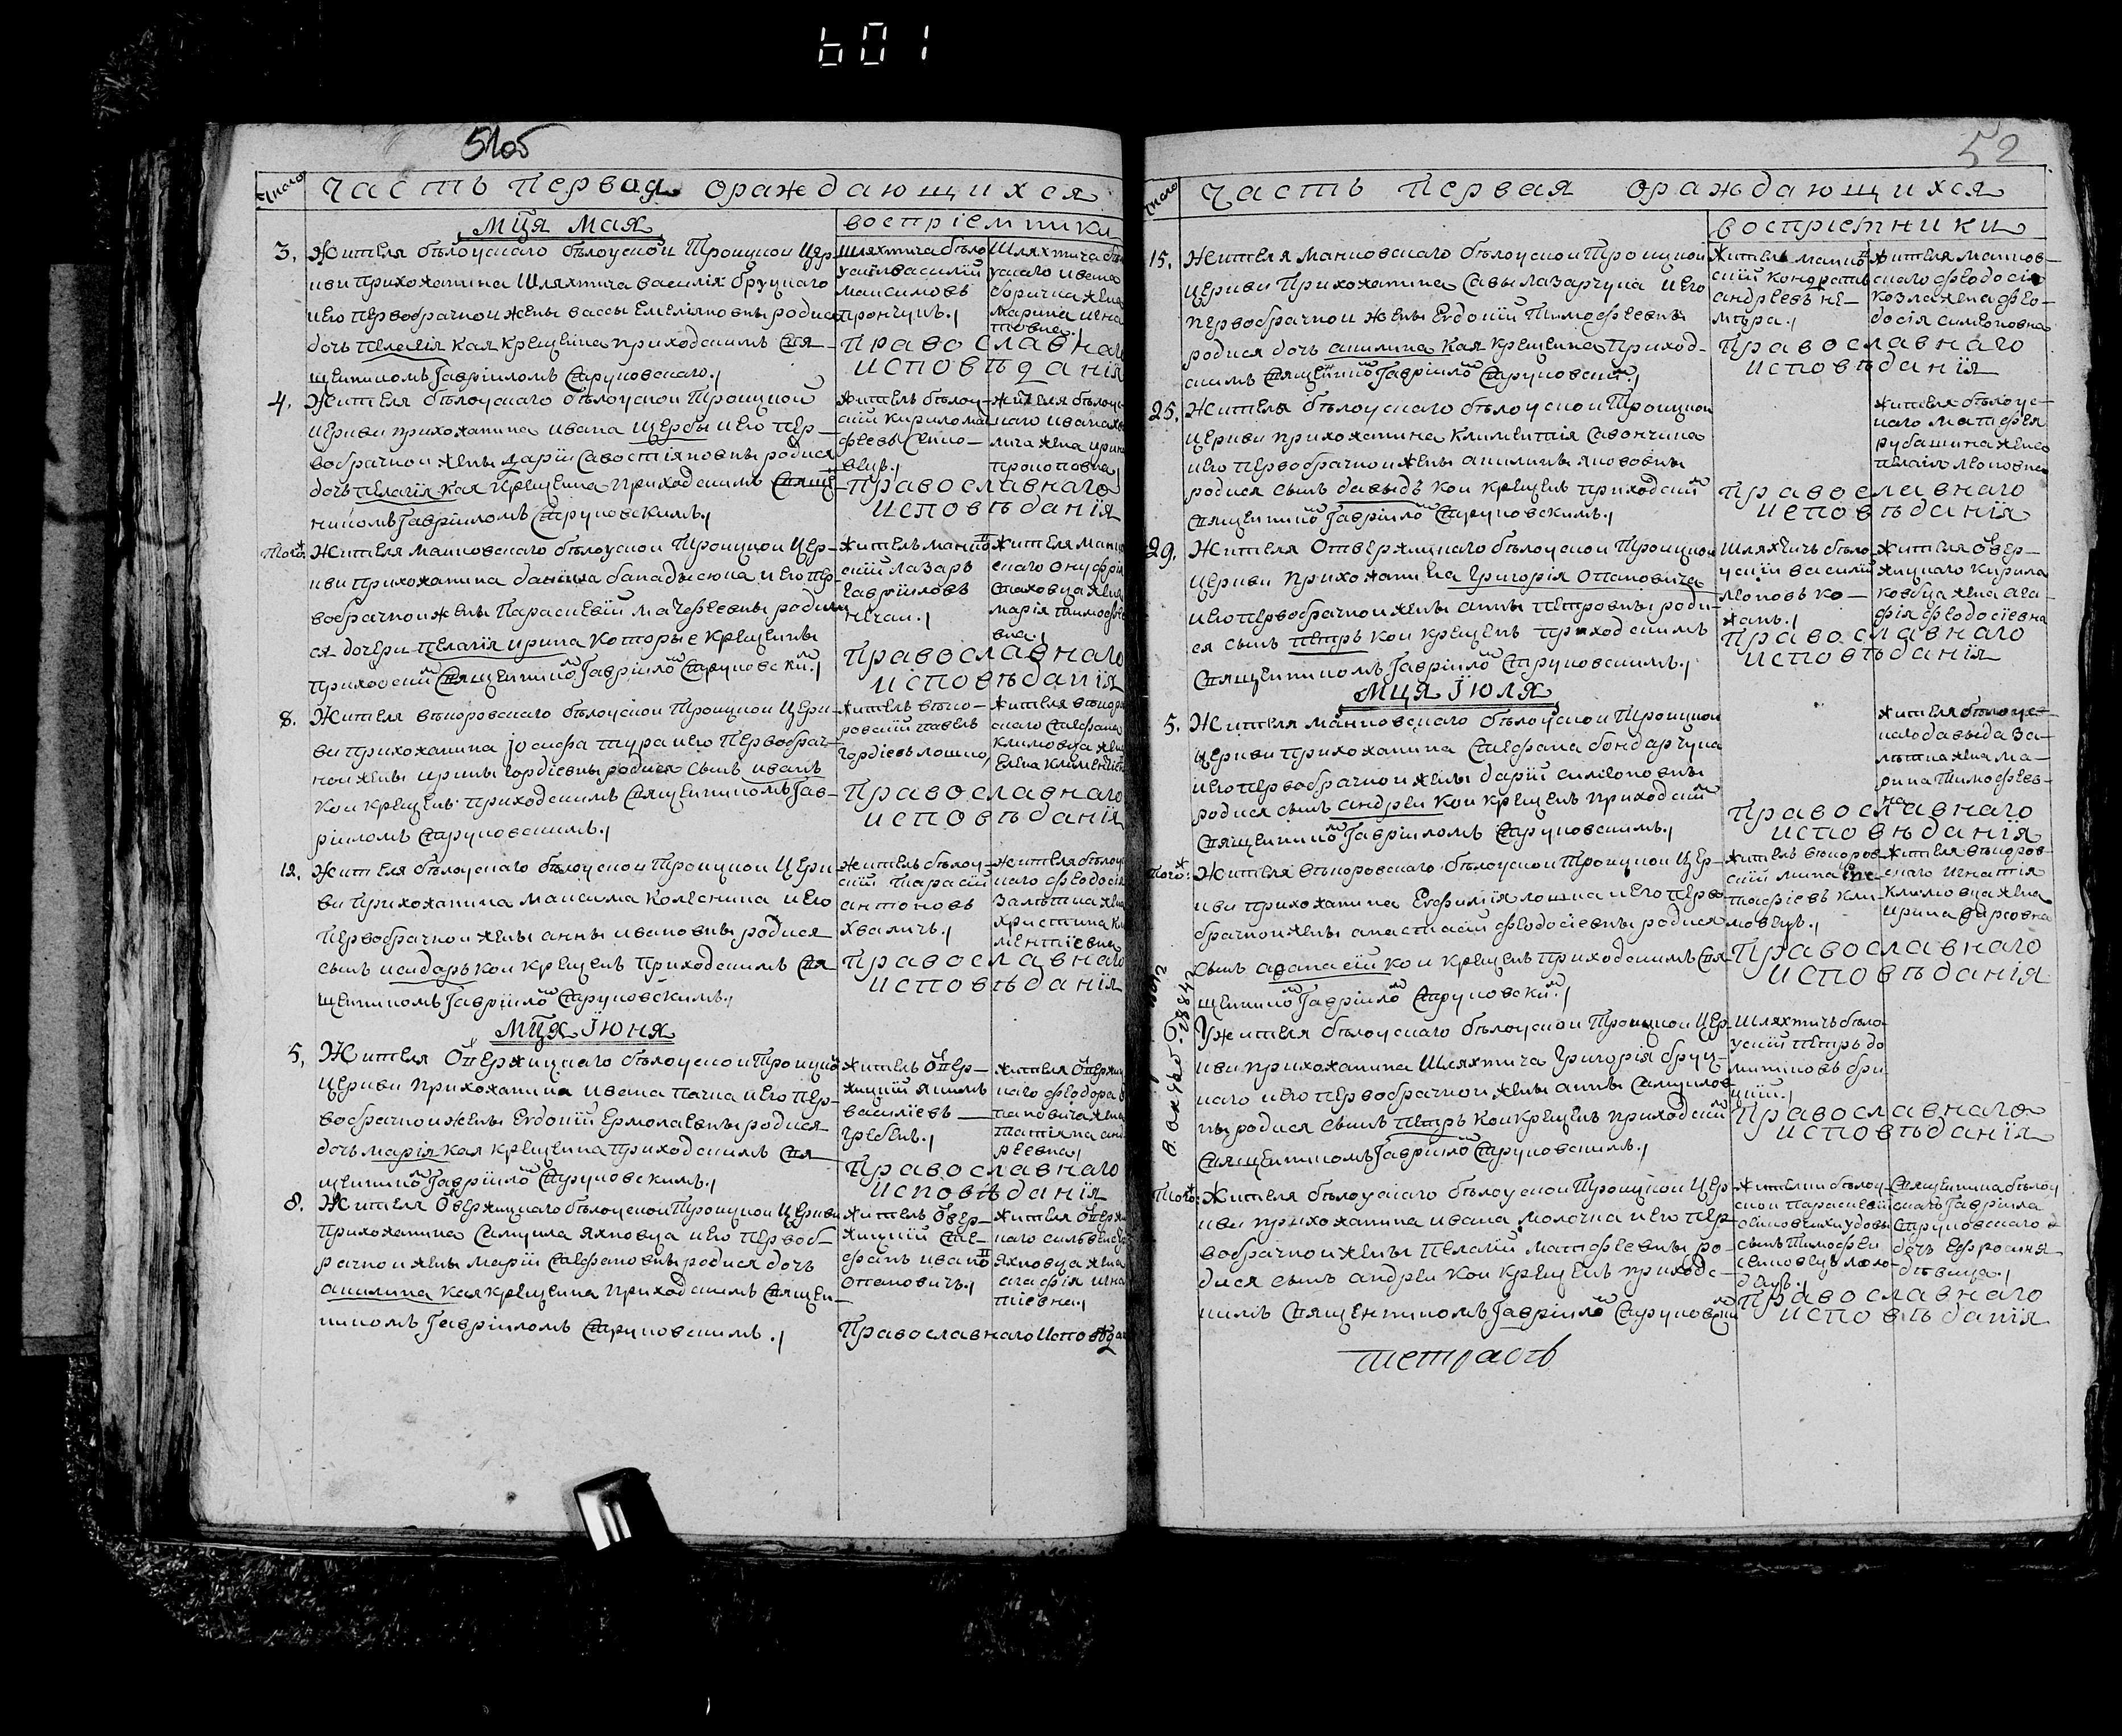 601
51об
Число
Часть первая ораждающихся
Мця Мая
воспріемники
3. Жителя бѣлоускаго бѣлоуской Троицкой Цер-
кви прихожанина Шляхтича василія бруцкаго
иего первобрачной жены вассы Емеліяновны родися
дочь пелагія кая крещенна приходскимъ Свя-
щенникомъ Гавріиломъ Струковскаго.
Шляхтича бѣло
ускіи василіи
Максимовъ
прончукъ.
Шляхтича бѣл
ускаго ивана
жена
марина игна
товна.
Православнаг
исповѣданія
4. Жителя бѣлоускаго бѣлоуской Троицкой
церкви прихожанина ивана щербы иего пер-
вобрачной жены дарiи Савостіяновны родися
дочь пелагія кая крещенна приходскимъ Свяще-
никомъ Гавріиломъ Струковскимъ.
Житель бѣлоу-
скіи кирило ма
фѣевъ
Жителя бѣлоу
каго ивана
жена ирина
прокоповна
Православнаго
исповѣданія
Того: Жителя манковскаго бѣлоуской Троицкой Цер-
кви прихожанина данила иего пер-
вобрачной жены Параскевіи матфѣевны родили
ся дочери пелагія ирина которые крещенны
приходскимъ Священникомъ Гавріиломъ Струковскимъ.
Житель манков
скіи лазаръ
Гавріиловъ
нечаи.
Жителя манко
скаго онуфрія
жена
марія тимофѣе
вна.
Православнаго
исповѣданія
8. Жителя вѣторовскаго бѣлоуской Троицкой Церк-
ви прихожанина іосифа тура иего первобрач-
ной жены ирины гордіевны родися сынъ иванъ
кои крещенъ приходскимъ Священникомъ Гав-
ріиломъ Струковскимъ.
павелъ
гордіевъ лошко,
скаго Стефана
климовца жена
Елена климентіев
Православнаго
исповѣданія
12. Жителя бѣлоускаго бѣлоуской Троицкой Церк-
ви прихожанина максима колесника иего
первобрачной жены анны ивановны родися
сынъ исидоръ кои крещенъ приходскимъ Свя
щенникомъ Гавріиломъ Струковскимъ.
Житель бѣлоу-
скіи тарасіи
антоновъ
хваличъ.
Жителя бѣлоус
каго феодосія
жена
христина кли
ментіевна
Православнаго
исповѣданія
Мця Іюня
5. Жителя Отвержицкаго бѣлоуской Троицкой
церкви прихожанина ивана пачка иего пер-
вобрачной жены Евдокіи Ермолаевны родися
дочь марія кая крещенна приходскимъ Свя
щенникомъ Гавріиломъ Струковскимъ.
Житель Отвер-
жицкіи якимъ
василіевъ
гребень.
Жителя Отвержиц
каго федора
жена
татіяна анд
реевна
Православнаго
исповѣданія
8. Жителя Отвержицкаго бѣлоуской Троицкой Церкви
прихожанина Самуила яхновца иего первоб-
рачной жены маріи Стефановны родися дочь
акилина кая крещенна приходскимъ Священ-
никомъ Гавріиломъ Струковскимъ.
Житель Отвер-
жицкіи Сте-
фанъ ивановъ
опановичъ.
Жителя Отвержиц
каго
яхновца жена
агафія игна
тіевна.
Православнаго исповѣдан
52
Число
Часть Первая ораждающихся
воспріемники
15. Жителя манковскаго бѣлоуской Троицкой
церкви прихожанина Савы лазарчука иего
первобрачной жены Евдокіи Тимофѣевны
родися дочь акилина кая крещенна приход-
скимъ Священникомъ Гавріиломъ Струковскимъ.
Житель манков
скіи кондратъ
андреевъ не-
мѣра.
Жителя манков-
скаго феодосія
козла жена фео-
досія симеоновна
Православнаго
исповѣданія
25. Жителя бѣлоускаго бѣлоуской Троицкой
церкви прихожанина климентія Савончика
иего первобрачной жены акилины яковевны
родися сынъ давыдъ кои крещенъ приходскимъ
Священникомъ Гавріиломъ Струковскимъ.
Жителя бѣлоус-
каго матфея
рубашина жена
пелагія леоновна
Православнаго
исповѣданія
29. Жителя Отвержицкаго бѣлоуской Троицкой
церкви прихожанина григорія опановича
иего первобрачной жены анны петровны роди-
ся сынъ петръ кои крещенъ приходскимъ
Священникомъ Гавріиломъ Струковскимъ.
Шляхтичъ бѣло-
ускіи василіи
леоновъ ко-
жанъ.
Жителя Отвер-
жицкаго кирила
ковбца жена ага-
фія феодосіевна
Православнаго
исповѣданія
Мця Іюля
5. Жителя манковскаго бѣлоуской Троицкой
церкви прихожанина Стефана бондарчука
иего первобрачной жены даріи симеоновны
родися сынъ андреи кои крещенъ приходскимъ
Священникомъ Гавріиломъ Струковскимъ.
Жителя бѣлоус-
каго давыда За-
жена ма-
рина тимофеев-
на
Православнаго
исповѣданія
Того: Жителя вѣторовскаго бѣлоуской Троицкой Цер-
кви прихожанина Евфимія лошка иего перво-
брачной жены анастасіи феодосіевны родися
сынъ афанасіи кои крещенъ приходскимъ Свя-
щенникомъ Гавріиломъ Струковскимъ.
скіи мина Евс-
тафіевъ кли-
мовецъ.
скаго игнатія
климовца жена
ирина фирсовна
Православнаго
исповѣданія
6. У жителя бѣлоускаго бѣлоуской Троицкой Цер-
кви прихожанина Шляхтича Григорія бруц-
каго иего первобрачной жены анны Самуилов-
ны родися сынъ петръ кои крещенъ приходскимъ
Священникомъ Гавріиломъ Струковскимъ.
Шляхтичъ бѣло-
ускіи петръ до
миниковъ бру-
цкіи.
Православнаго
исповѣданія
Того: Жителя бѣлоускаго бѣлоуской Троицкой Цер-
кви прихожанина ивана молочка иего пер-
вобрачной жены пелагіи матфѣевны ро-
дися сынъ андреи кои крещенъ приходс-
кимъ Священникомъ Гавріиломъ Струковским
сынъ Тимофеи
Священника бѣлоу
скаго Гавріила
Струковскаго
дочь Ефросиня
дѣвица.
Православнаго
исповѣданія
тетрадь